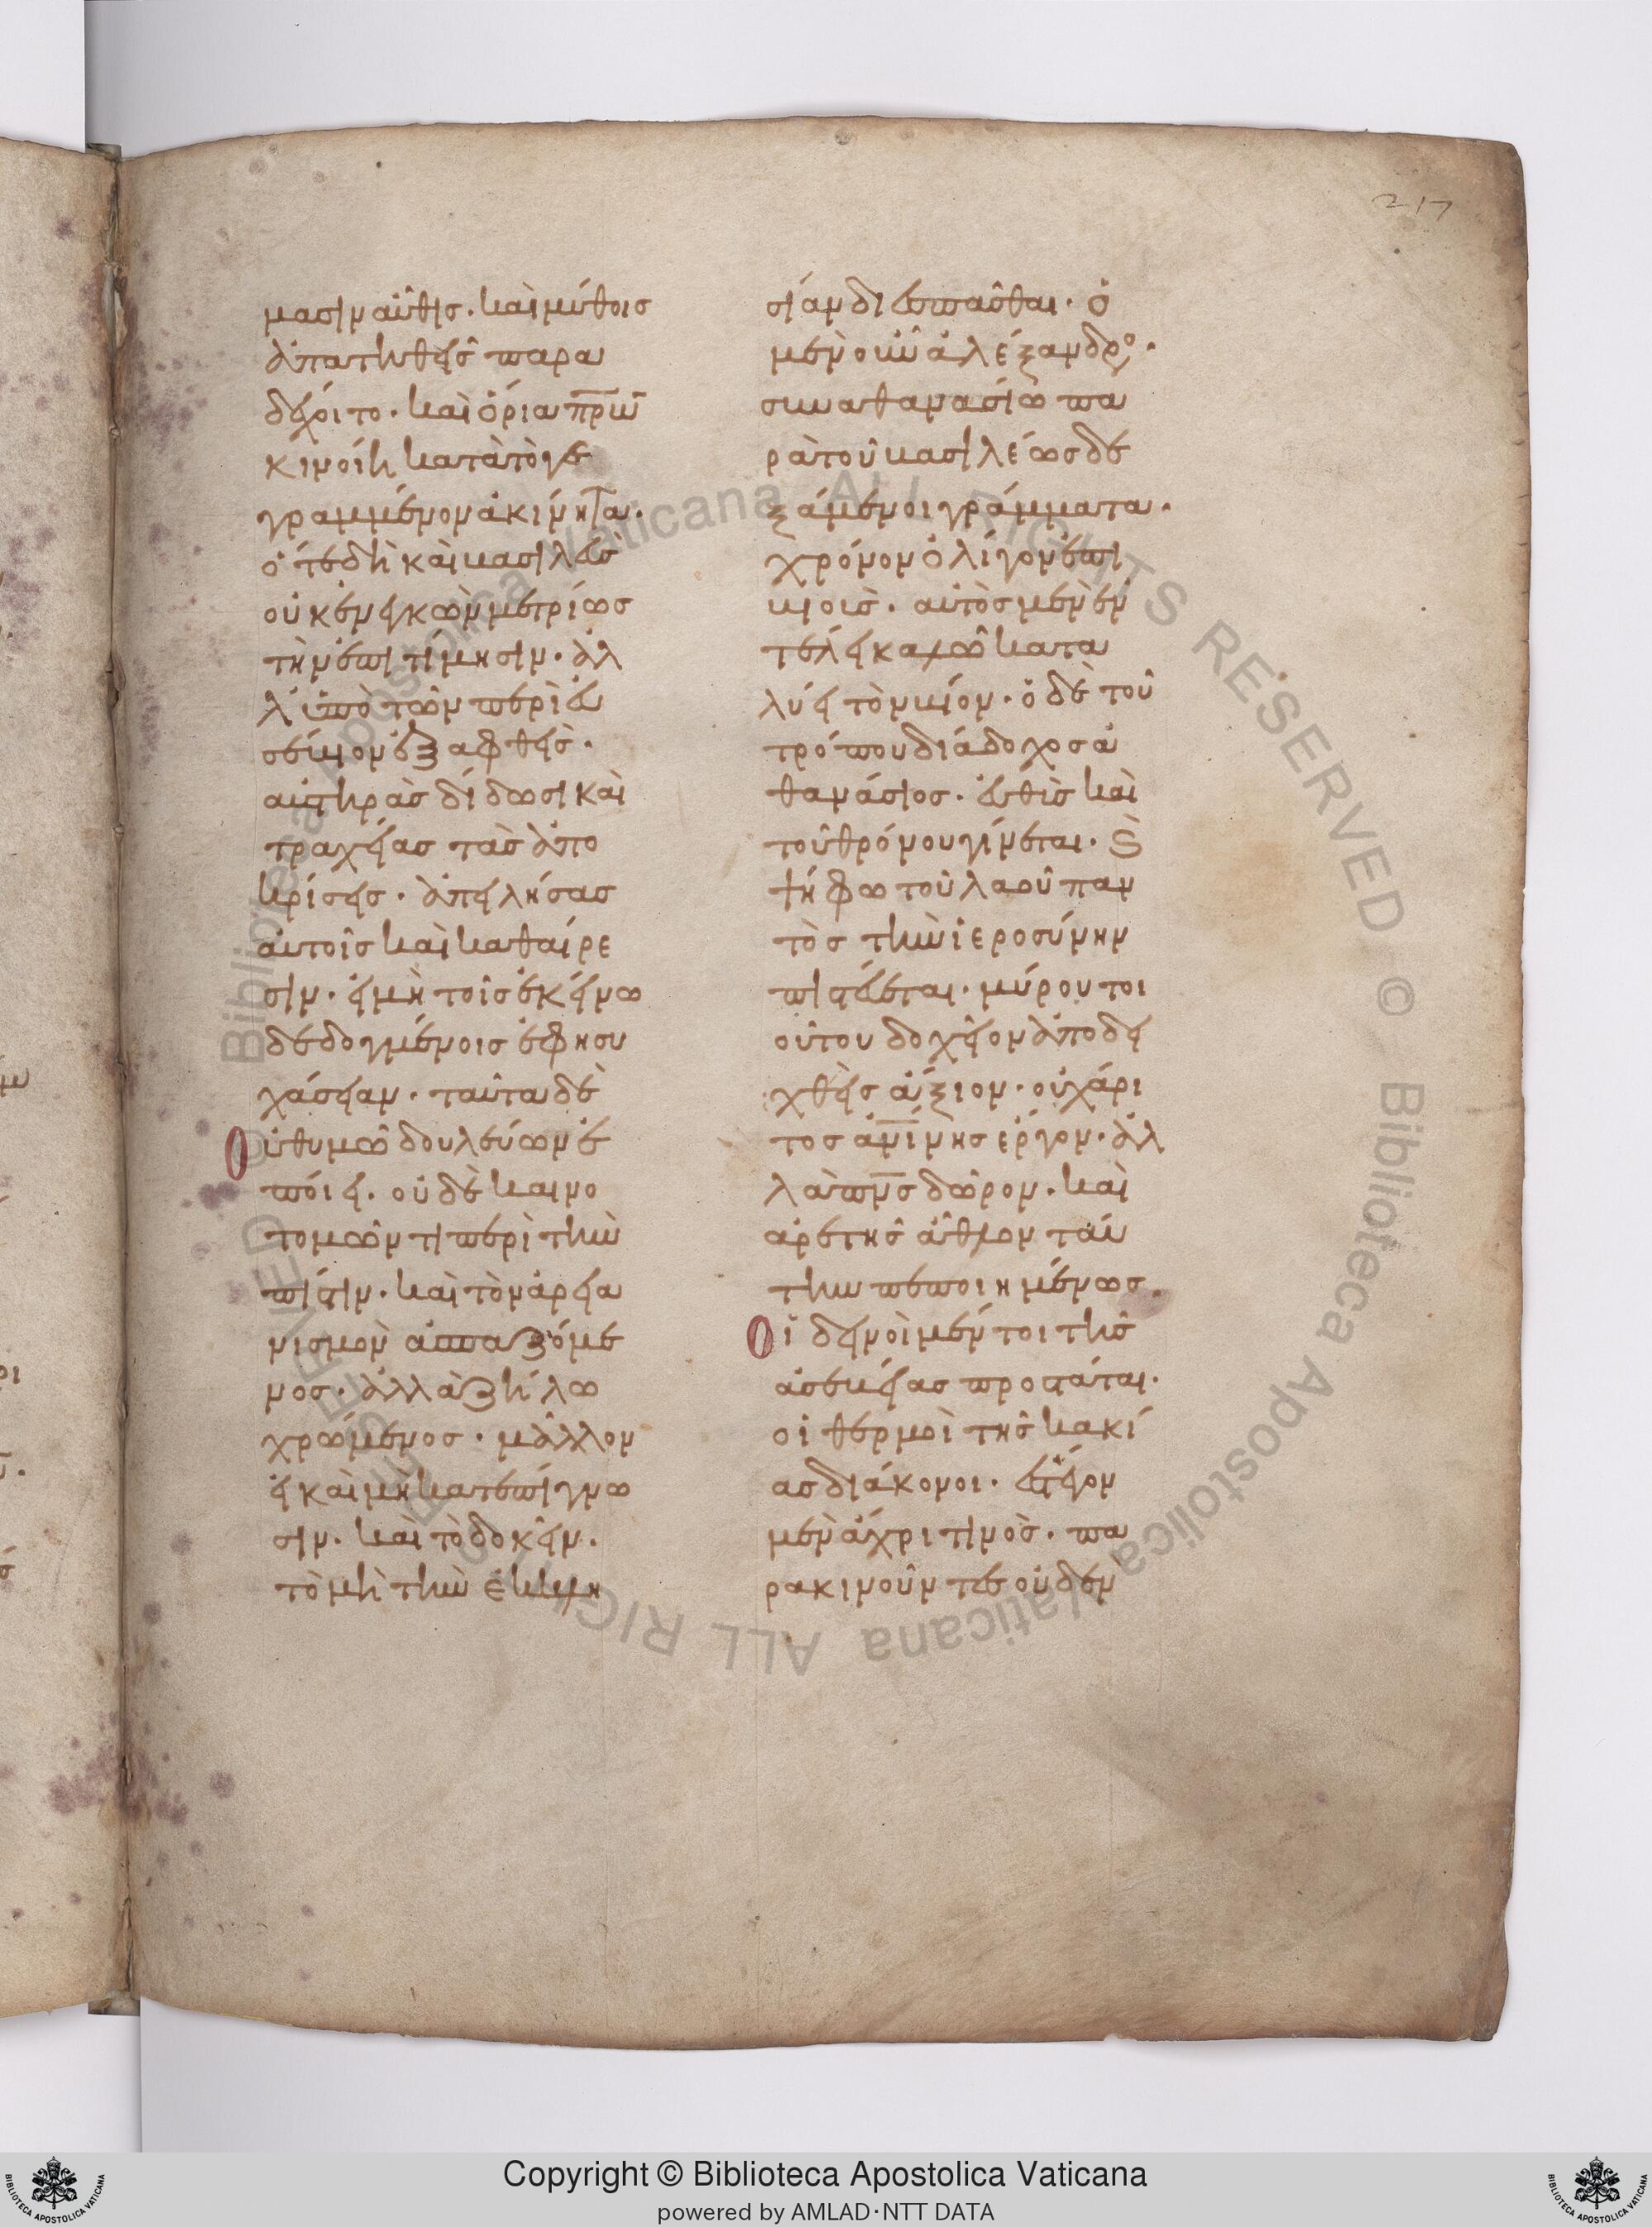 217
μασιν αὖθις· καὶ μύθοις
ἀπατηθεὶς παρα
δέχοιτο· καὶ ὅρια πρ̅ω̅
κινοίη κατὰ τὸ γε
γραμμένον ἀκίνητα·
ὅτε δὴ καὶ βασιλεὺς
οὐκ ἐνεγκὼν μετρίως
τὴν ἐπιτίμησιν· ἀλ
λ' ὑπὸ τῶν περὶ εὐ
σέβιον ἐξαφθεὶς·
αὐστηρὰς δίδωσι καὶ
τραχείας τὰς ἀπο
κρίσεις· ἀπειλήσας
αὐτοῖς καὶ καθαίρε
σιν· εἰ μὴ τοῖς ἐκείνω
δεδογμένοις ἐφησυ
χάσειαν· ταῦτα δὲ
οὐ θυμῶ δουλεύων ἐ
ποίει· οὐδὲ καινο
τομῶν τι περὶ τὴν
πίστιν· καὶ τὸν ἀρεια
νισμὸν ἀσπαζόμε
νος· ἀλλὰ ζήλω
χρώμενος· μᾶλλον
εἰ καὶ μὴ κατ' ἐπίγνω
σιν· καὶ τὸ δοκεῖν·
τὸ μὴ τὴν ἐκκλη
σίαν διεσπᾶσθαι· ὁ
μὲν οὖν ἀλέξανδρο·
σὺν ἀθανασίω πα
ρὰ τοῦ βασιλέως δε
ξάμενοι γράμματα·
χρόνον ὀλίγον ἐπι
βιοὺς· αὐτὸς μὲν ἐν
τέλει καλῶ κατα
λύει τὸν βίον· ὁ δὲ τοῦ
τρόπου διάδοχος ἀ
θανάσιος· εὐθὺς καὶ
τοῦ θρόνου γίνεται· ϗ
ψήφω τοῦ λαοῦ παν
τὸς τὴν ἱεροσύνην
πιστεύεται· μύρου τοι
ούτου δοχεῖον ἀποδει
χθεὶς ἄξιον· οὐ χάρι
τος ἀν̅ι̅νης ἔργον· ἀλ
λὰ π̅ν̅ς̅ δῶρον· καὶ
ἀρετῆς ἆθλον ταύ
την πεποιημένως·
οἱ δεινοὶ μέντοι τῆς
ἀσεβείας προστάται·
οἱ θερμοὶ τῆς κακί
ας διάκονοι· ἔστεγον
μὲν ἄχρι τινὸς· πα
ρακινοῦντες οὐδὲν
Copyright © Biblioteca Apostolica Vaticana
powered by AMLAD·NTT DATA